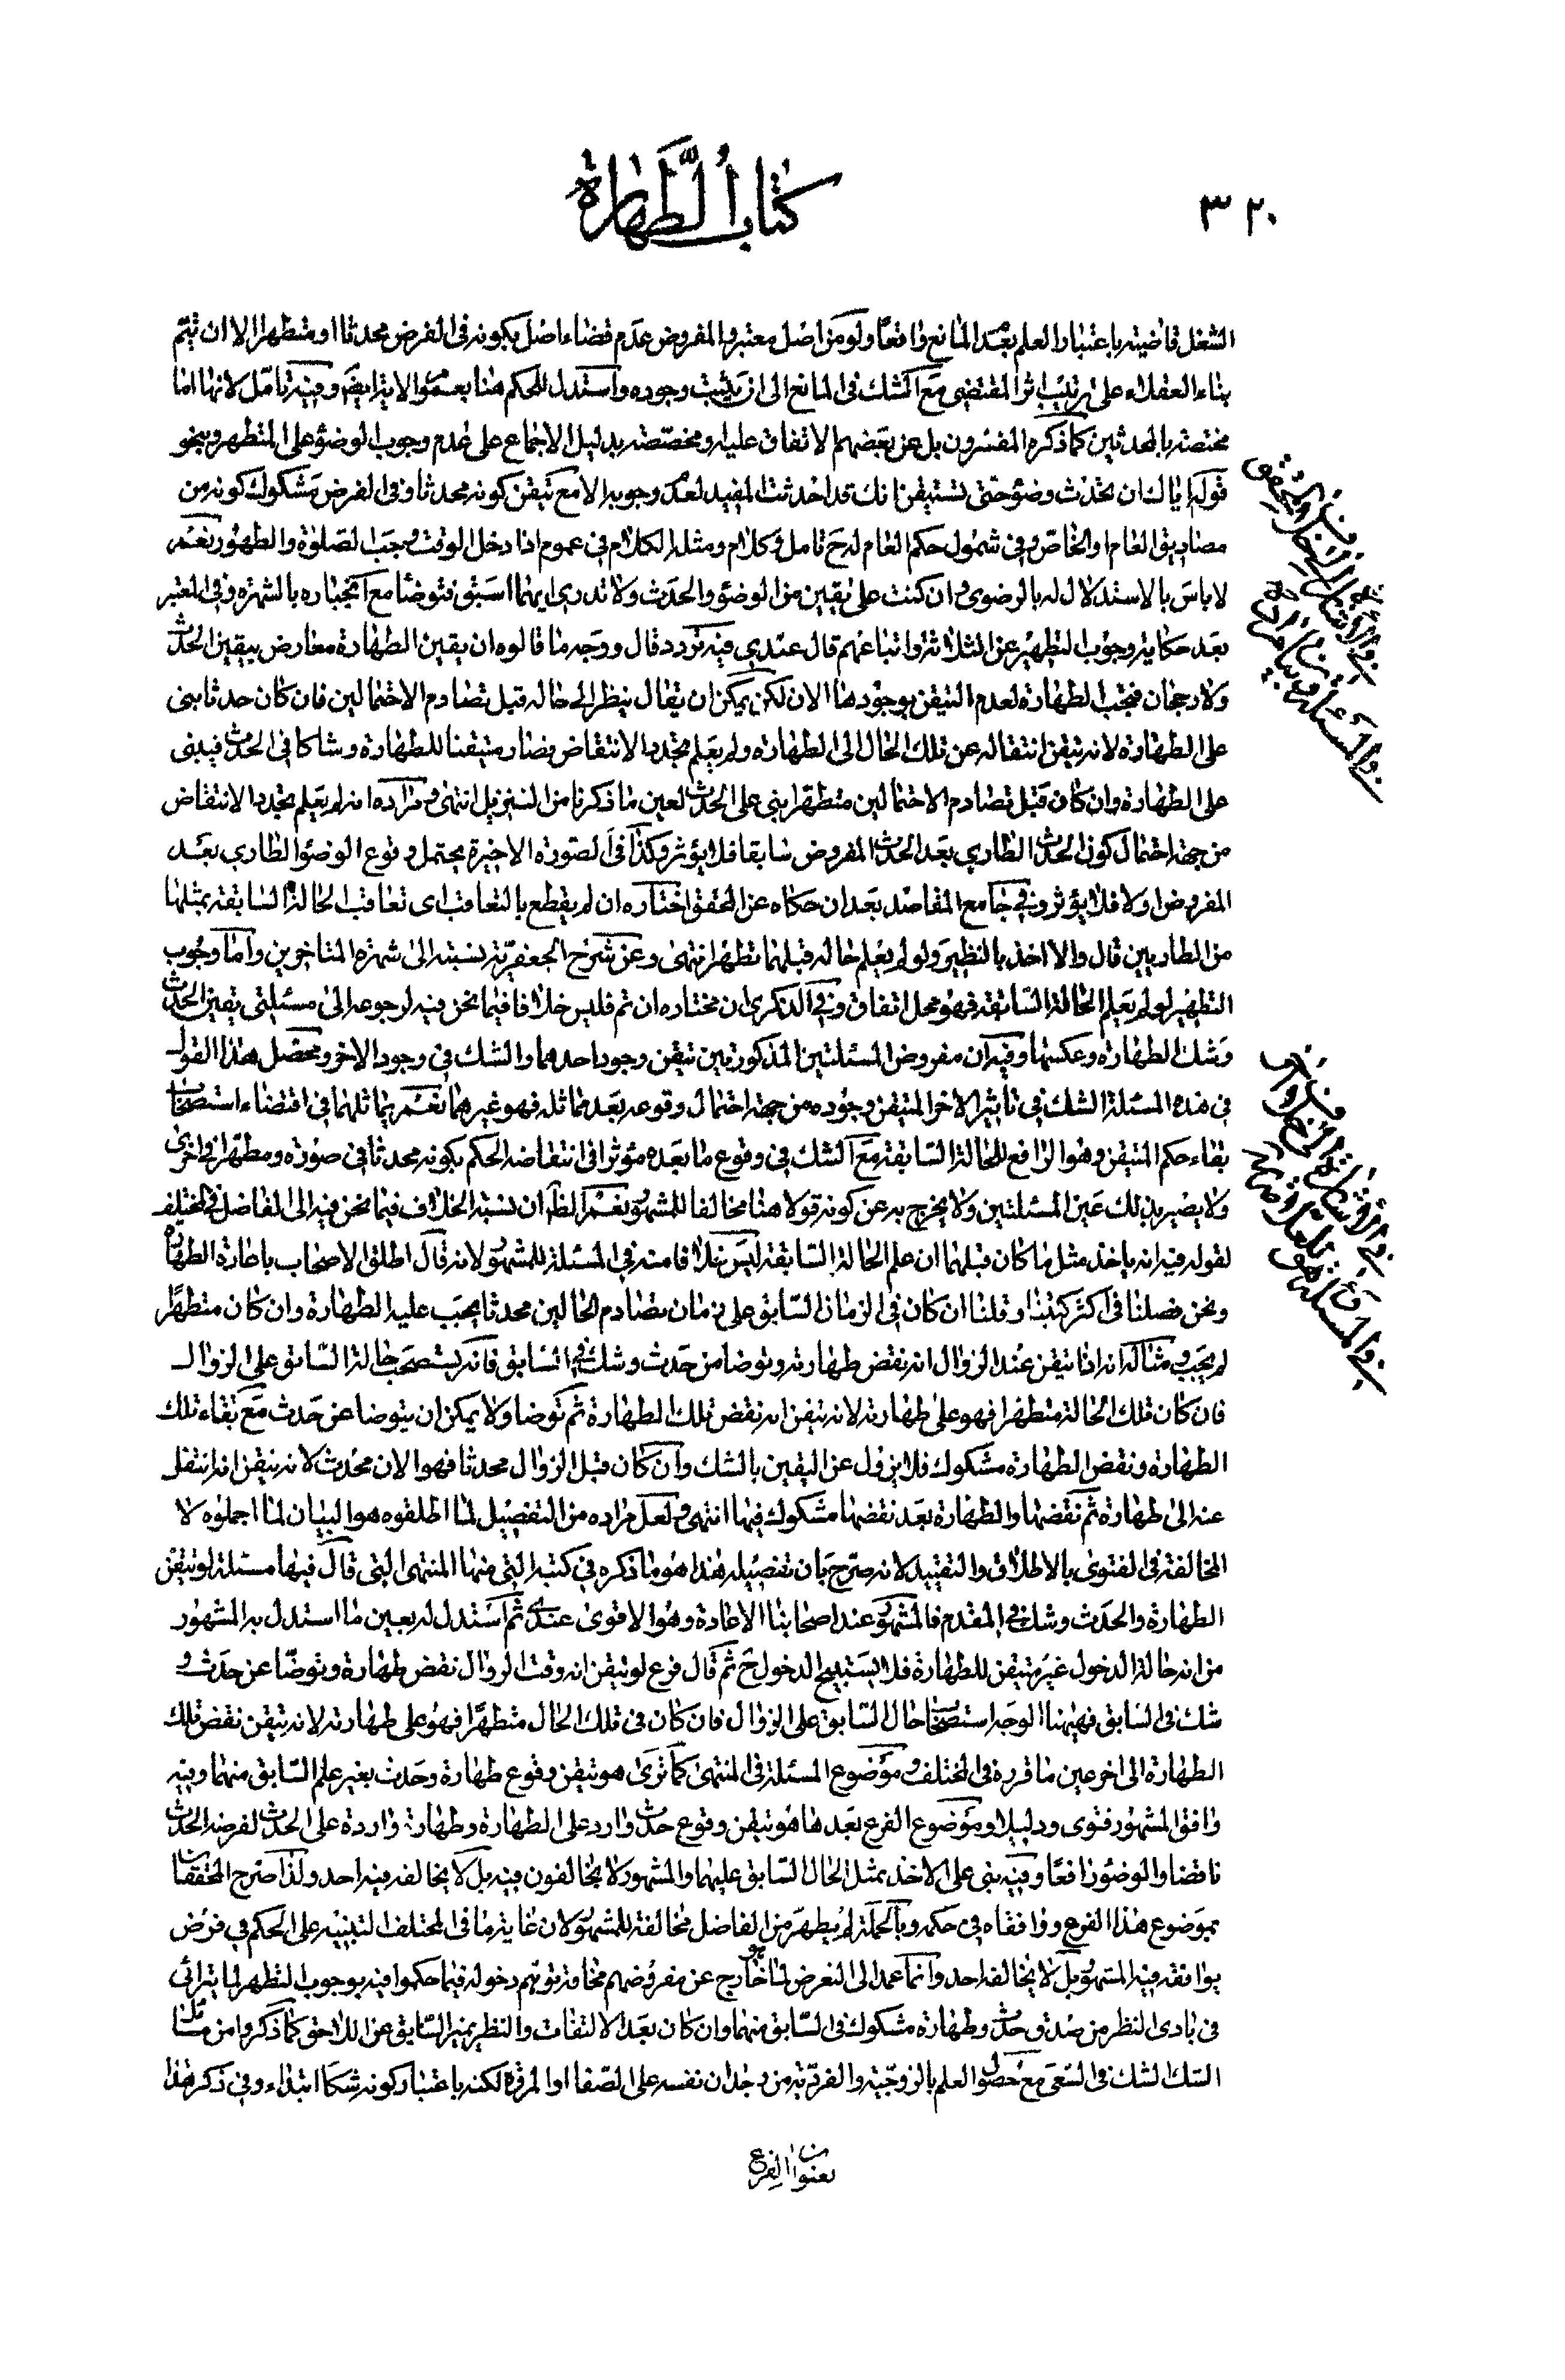 كتاب الطهارة
٣٢٠
الشغل قاضية باعتبار العلم بعدم المانع واقعا ولو من اصل معتبر والمفروض عدم قضاء اصل بكونه في الفرض محدثا او متطهرا الا ان يتم
بناء العقلاء على ترتيب اثر المقتضي مع الشك في المانع الى ان يثبت وجوده واستدل للحكم هنا بعموم الاية ايضا وفيه تامل لانها اما
مختصة بالمحدثين كما ذكره المفسرون بل عن بعضهم الاتفاق عليه ومخصصة بدليل الاجماع على عدم وجوب الوضوء على المتطهر وبنحو
قوله اياك ان تحدث وضوء حتى تستيقن انك قد احدثت المفيد لعدم وجوبه الا مع تيقن كونه محدثا وفي الفرض مشكوك كونه من
مصاديق العام او الخاص وفي شمول حكم العام له ح تامل وكلام ومثله الكلام في عموم اذا دخل الوقت وجب الصلوة والطهور نعم
لا باس بالاستدلال له بالرضوي وان كنت على يقين من الوضوء والحدث ولا تدري ايهما اسبق فتوضا مع انجباره بالشهرة وفي المعتبر
بعد حكاية وجوب التطهير عن الثلاثة واتباعهم قال عندي فيه تردد قال ووجه ما قالوه ان يقين الطهارة معارض بيقين الحدث
ولا رجحان فتجب الطهارة لعدم التيقن بوجودها الان لكن يمكن ان يقال ينظر الى حاله قبل تصادم الاحتمالين فان كان حدثا بنى
على الطهارة لانه تيقن انتقاله عن تلك الحال الى الطهارة ولم يعلم تجدد الانتقاض فصار متيقنا للطهارة وشاكا في الحدث فيبنى
على الطهارة وان كان قبل تصادم الاحتمالين متطهرا بنى على الحدث لعين ما ذكرنا من التنزيل انتهى ومراده انه لم يعلم تجدد الانتقاض
من جهة احتمال كون الحدث الطاري بعد الحدث المفروض سابقا فلا يؤثر وكذا في الصورة الاخيرة يحتمل وقوع الوضوء الطاري بعد
المفروض اولا فلا يؤثر وفي جامع المقاصد بعد ان حكاه عن المحقق اختاره ان لم يقطع بالتعاقب اى تعاقب الحالة السابقة بمثلها
من الطاريين قال والا اخذ بالنظير ولو لم يعلم حاله قبلهما تطهر انتهى وعن شرح الجعفرية نسبته الى شهرة المتاخرين واما وجوب
التطهير لو لم يعلم الحالة السابقة فهو محل اتفاق وفي الذكرى ان مختاره ان تم فليس خلافا فيما نحن فيه لرجوعه الى مسئلتى يقين الحدث
وشك الطهارة وعكسها وفيه ان مفروض المسئلتين المذكورتين تيقن وجود احدهما والشك في وجود الاخر ومحصل هذا القول
في هذه المسئلة الشك في تأثير الاخر المتيقن وجوده من جهة احتمال وقوعه بعد مماثله فهو غيرهما نعم يماثلهما في اقتضاء استصحاب
بقاء حكم المتيقن وهو الرافع للحالة السابقة مع الشك في وقوع ما بعده مؤثرا في انتقاضه الحكم بكونه محدثا في صورة ومطهرا في اخرى
ولا يصير بذلك عين المسئلتين ولا يخرج به عن كونه قولا هنا مخالفا للمشهور نعم الظ ان نسبة الخلاف فيما نحن فيه الى الفاضل في المختلف
لقوله فيه انه ياخذ مثل ما كان قبلهما ان علم الحالة السابقة ليس خلافا منه في المسئلة للمشهور لانه قال اطلق الاصحاب باعادة الطهارة
ونحن فصلنا في اكثر كتبنا وقلنا ان كان في الزمان السابق على زمان تصادم الحالين محدثا يجب عليه الطهارة وان كان متطهرا
لم يجب ومثاله انه اذا تيقن عند الزوال انه نقض طهارته وتوضا من حدث وشك في السابق فانه يستصحب حالة السابق على الزوال
فان كان تلك الحالة متطهرا فهو على طهارته لانه تيقن انه نقض تلك الطهارة ثم توضا ولا يمكن ان يتوضا عن حدث مع بقاء تلك
الطهارة ونقض الطهارة مشكوك فلا يزول عن اليقين بالشك وان كان قبل الزوال محدثا فهو الان محدث لانه تيقن انه انتقل
عنه الى طهارة ثم نقضها والطهارة بعد نقضها مشكوك فيها انتهى ولعل مراده من التفصيل لما اطلقوه هو البيان لما اجملوه لا
المخالفة في الفتوى بالاطلاق والتقييد لانه صرح بان تفصيله هذا هو ما ذكره في كتبه التي منها المنتهى التي قال فيها مسئلة لو تيقن
الطهارة والحدث وشك في المقدم فالمشهور عند اصحابنا الاعادة وهو الاقوى عندى ثم استدل له بعين ما استدل به المشهور
من انه حالة الدخول غير متيقن للطهارة فلا يستبيح الدخول ح ثم قال فرع لو تيقن انه وقت الزوال نقض طهارة وتوضا عن حدث و
شك في السابق فههنا الوجه استصحاب حال السابق على الزوال فان كان في تلك الحال متطهرا فهو على طهارته لانه تيقن نقض تلك
الطهارة الى اخر عين ما قرره في المختلف وموضوع المسئلة في المنتهى كما ترى هو تيقن وقوع طهارة وحدث بغير علم السابق منهما وفيه
وافق المشهور فتوى ودليلا وموضوع الفرع بعدها هو تيقن وقوع حدث وارد على الطهارة وطهارة واردة على الحدث لفرضه الحدث
ناقضا والوضوء رافعا وفيه بنى على الاخذ بمثل الحال السابق عليهما والمشهور لا يخالفون فيه بل لا يخالف فيه احد ولذا صرح المحققان
بموضوع هذا الفرع ووافقاه في حكمه وبالجملة لم يظهر من الفاضل مخالفة للمشهور لان غاية ما في المختلف التنبيه على الحكم في فرض
يوافقه فيه المشهور بل لا يخالفه احد وانما عمد الى التعرض لما هو خارج عن مفروضهم مخافة توهم دخوله فيما حكموا فيه بوجوب التطهر لما يترائى
في بادى النظر من صدق حدث وطهارة مشكوك في السابق منهما وان كان بعد الالتفات والنظر يميز السابق عن اللاحق كما ذكروا من مسائل
الشك الشك في السعي مع حصول العلم بالزوجية والفردية من وجدان نفسه على الصفا او المروة لكنه باعتبار كونه شكا ابتداء وفي ذكر هذا
بعنوان الفرع